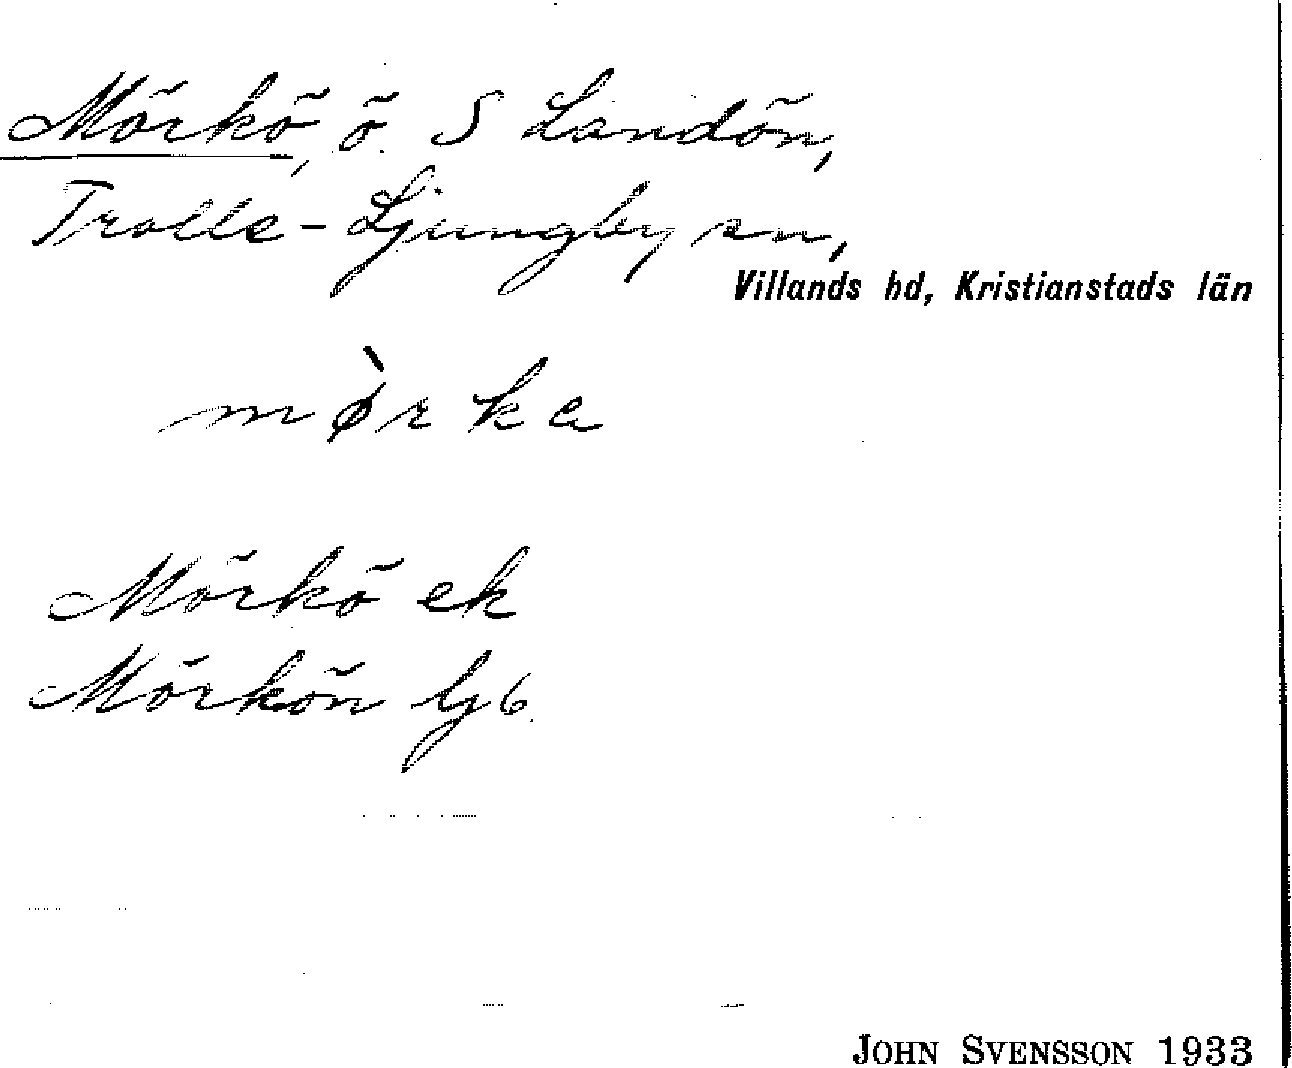 Mörkö, ö. S Landön,
Trolle-Ljungby sn,
Villands hd, Kristianstads län
mø̀rka
Mörkö ek
Mörkön
JOHN SVENSSON 1933